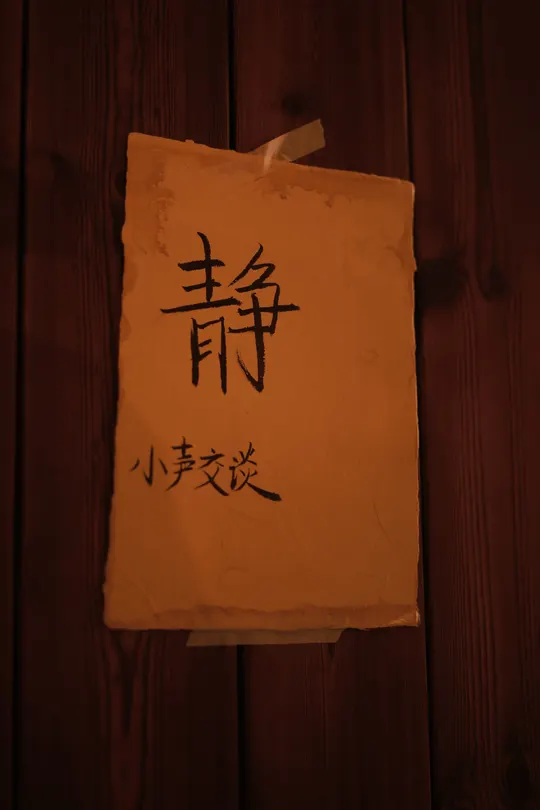 静
小声交谈